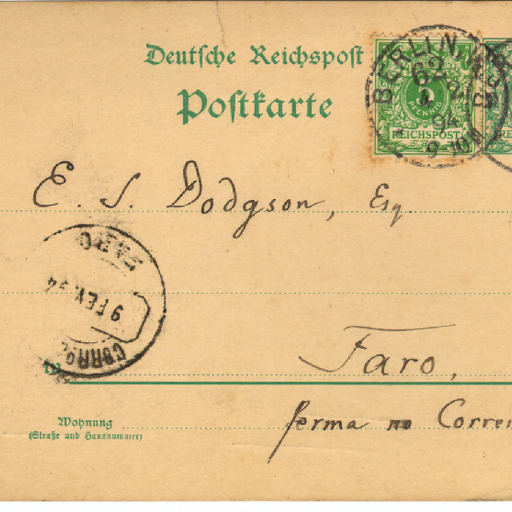 Deutsche Reichspost
Postkarte
BERLIN
62
94
9-10N
5
PFENNIG
REICHSPOST
E. S. Dodgson, Esq.
FARO
9 FEV. 94
CORRO
Faro,
ferma no Correi
Wohnung
(Straße und Hausnummer)